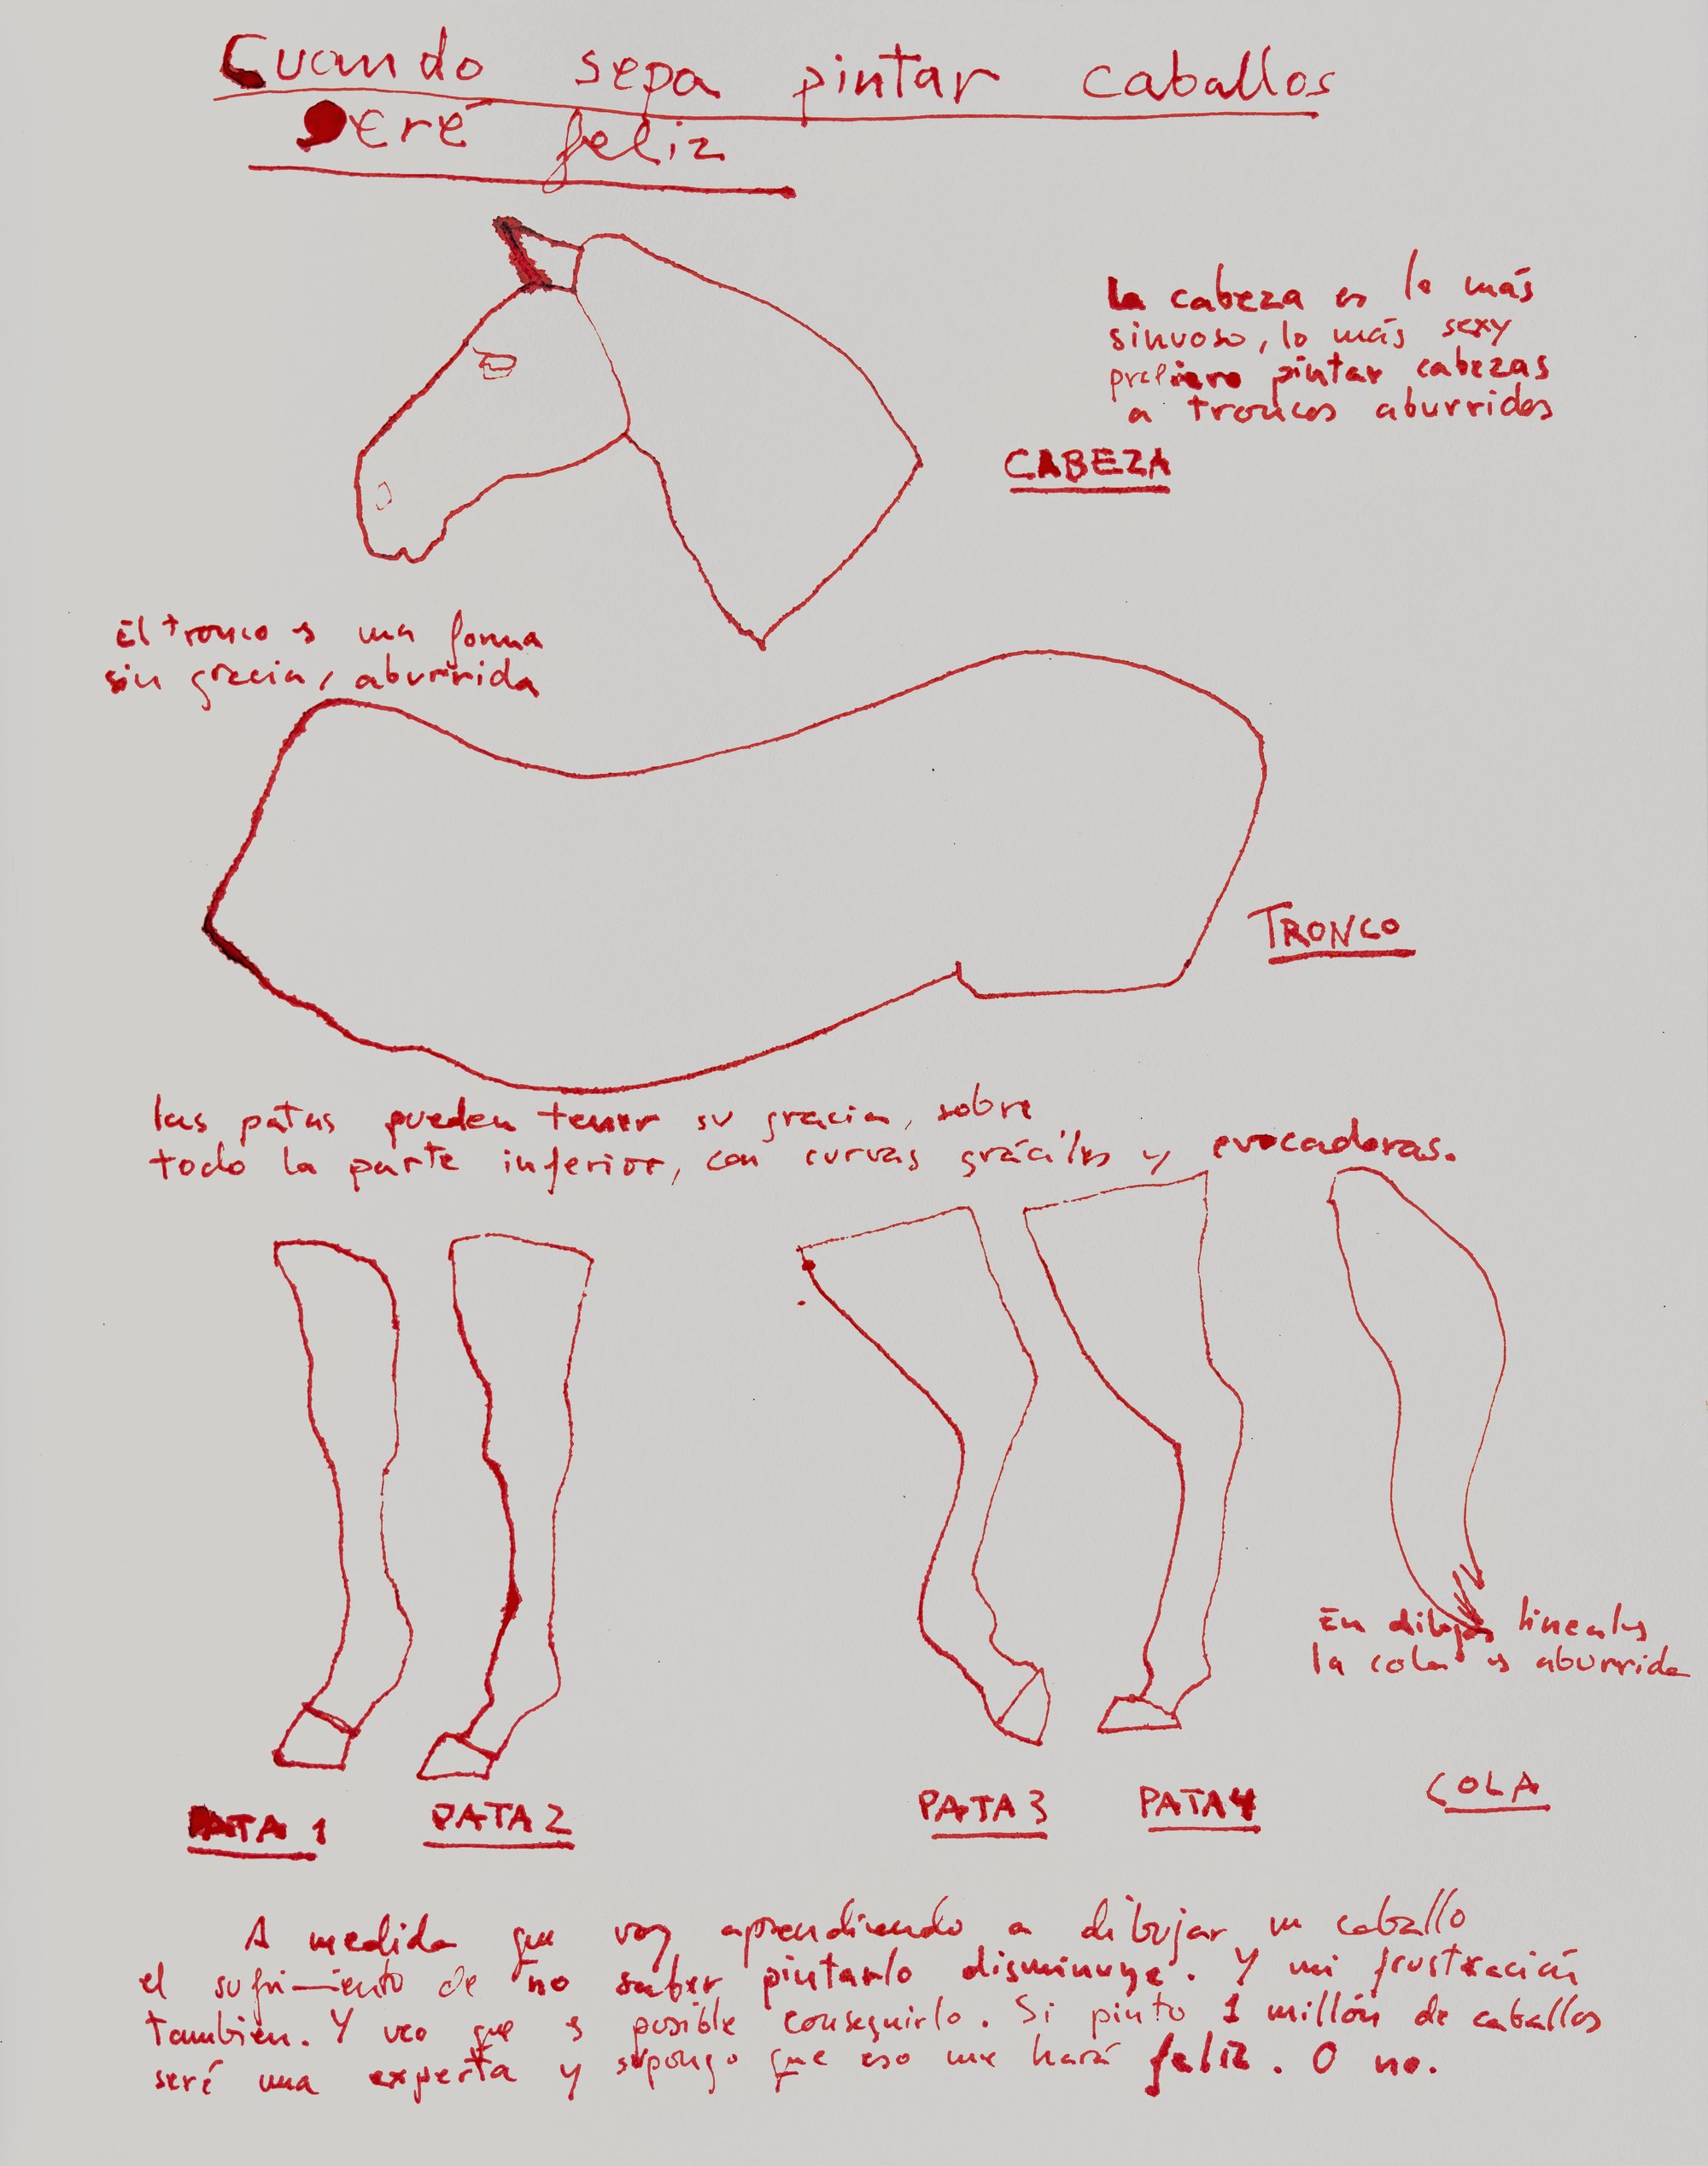 Cuando sepa pintar caballos
seré feliz
la cabeza es lo más
sinuoso, lo más sexy
prefiero pintar cabezas
a troncos aburridos
CABEZA
El tronco es una forma
sin gracia, aburrida
TRONCO
las patas pueden tener su gracia, sobre
todo la parte inferior, con curvas gráciles y evocadoras.
En dibujos lineales
la cola es aburrida
PATA 1
PATA 2
PATA 3
PATA 4
COLA
A medida que voy aprendiendo a dibujar un caballo
el sufrimiento de no saber pintarlo disminuye. Y mi frustración
también. Y veo que es posible conseguirlo. Si pinto 1 millón de caballos
seré una experta y supongo que eso me hará feliz. O no.